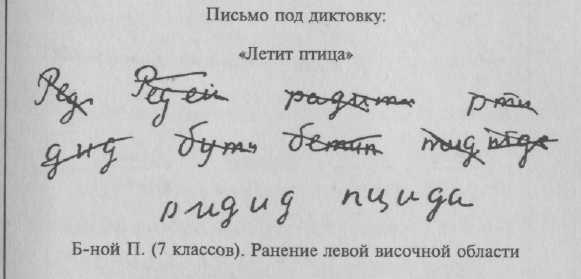 Письмо под диктовку:
«Летит птица»
Ред Редей радити рти
днд бути бетип тид птде
лидид пцида
Б-ной П. (7 классов). Ранение левой височной области